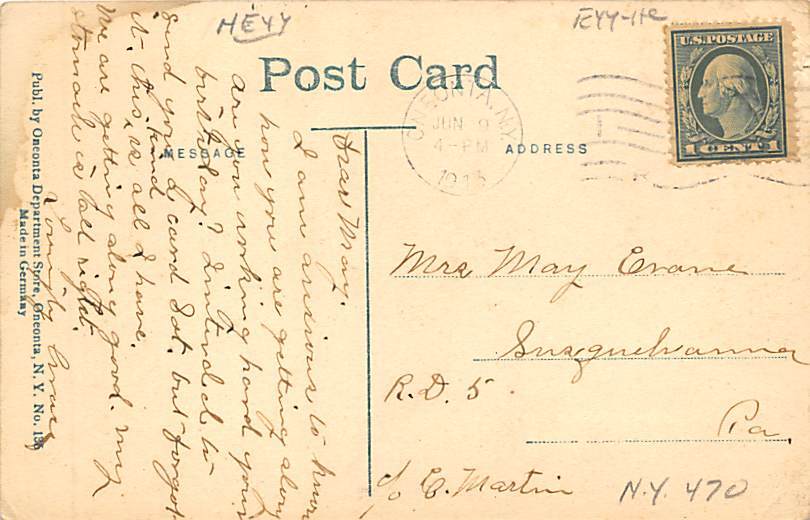 HEYY
Post Card
U.S. POSTAGE
1 CENT 1
ONEONTA, N.Y.
JUN 9
4-PM
1913
MESSAGE
ADDRESS
Dear May.
I am anxious to know
how you are getting along
are you working hard your
birthday? I intended to
send you a card Sat. but forgot
it. this kind is all I have.
We are getting along good. My
stomach is all right.
Lovingly Grace
Mrs May Evans
Susquehanna
R.D. 5
Pa
c/o C. Martin
N.Y. 470
Publ. by Oneonta Department Store, Oneonta, N. Y. No. 135
Made in Germany